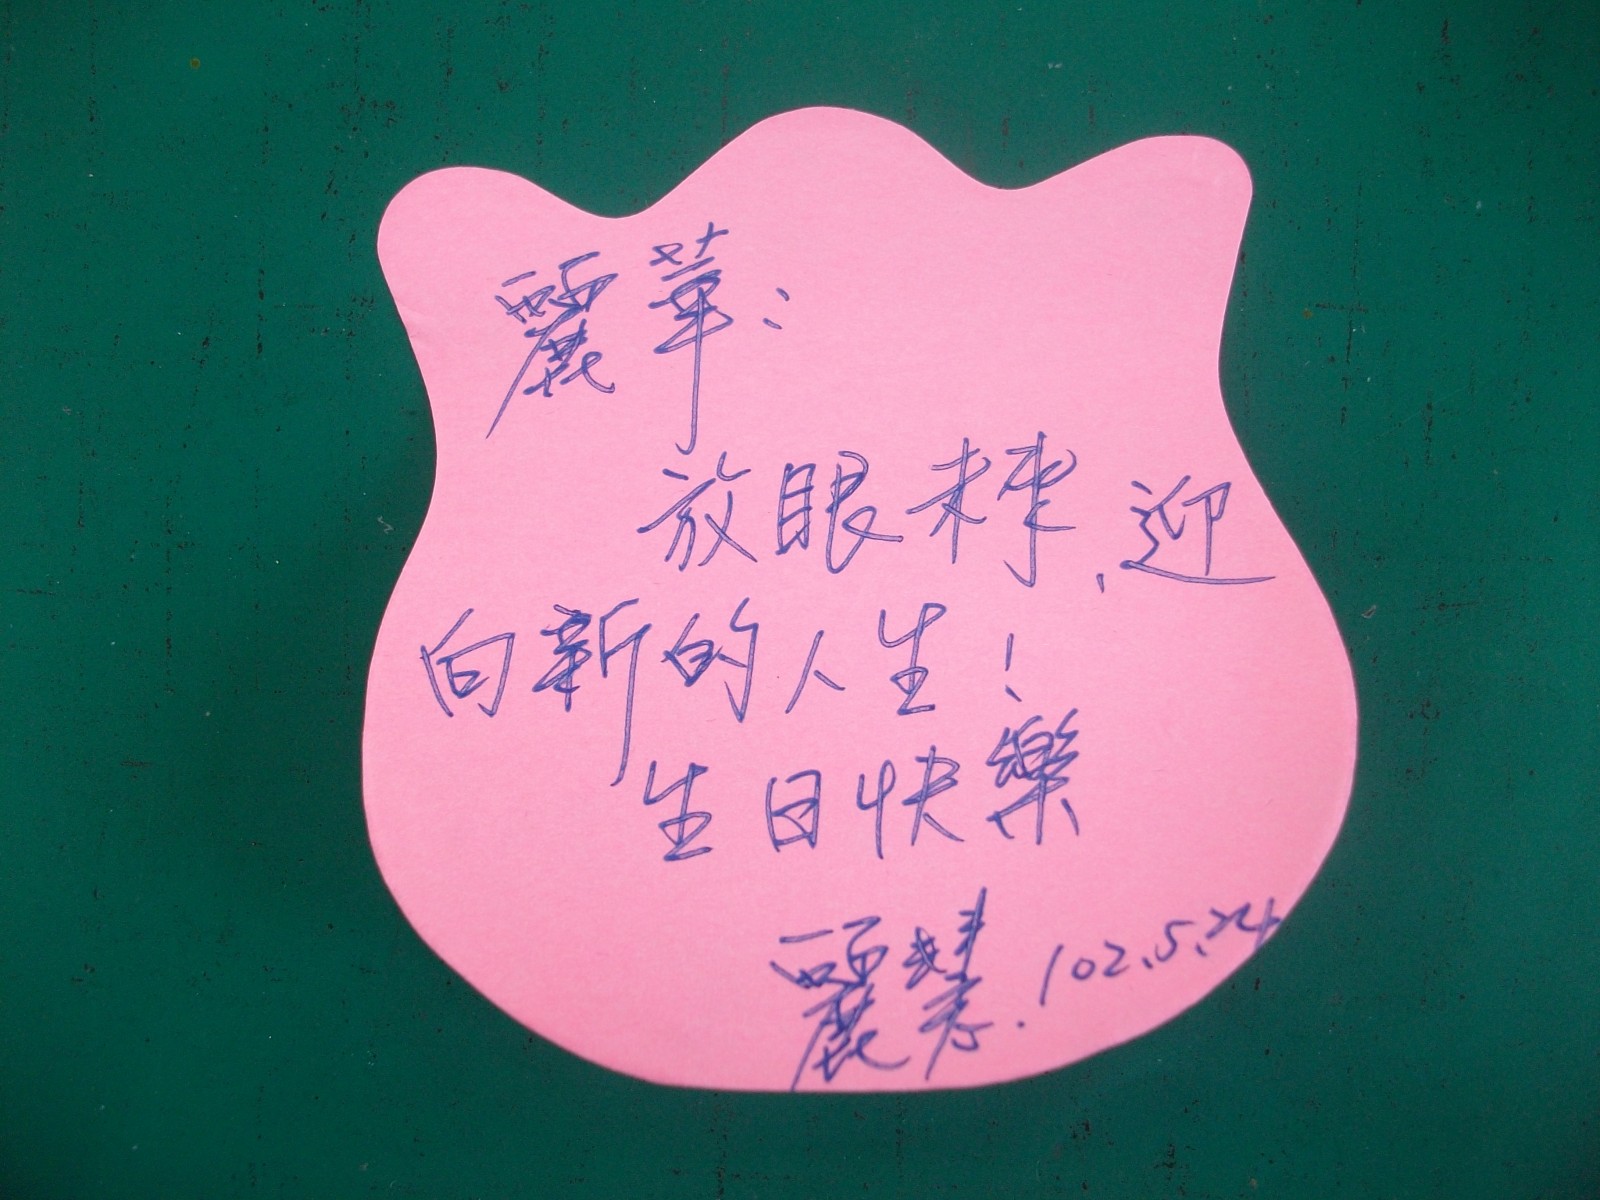 麗華：
放眼未來、迎
向新的人生！
生日快樂
麗慧.102.5.24